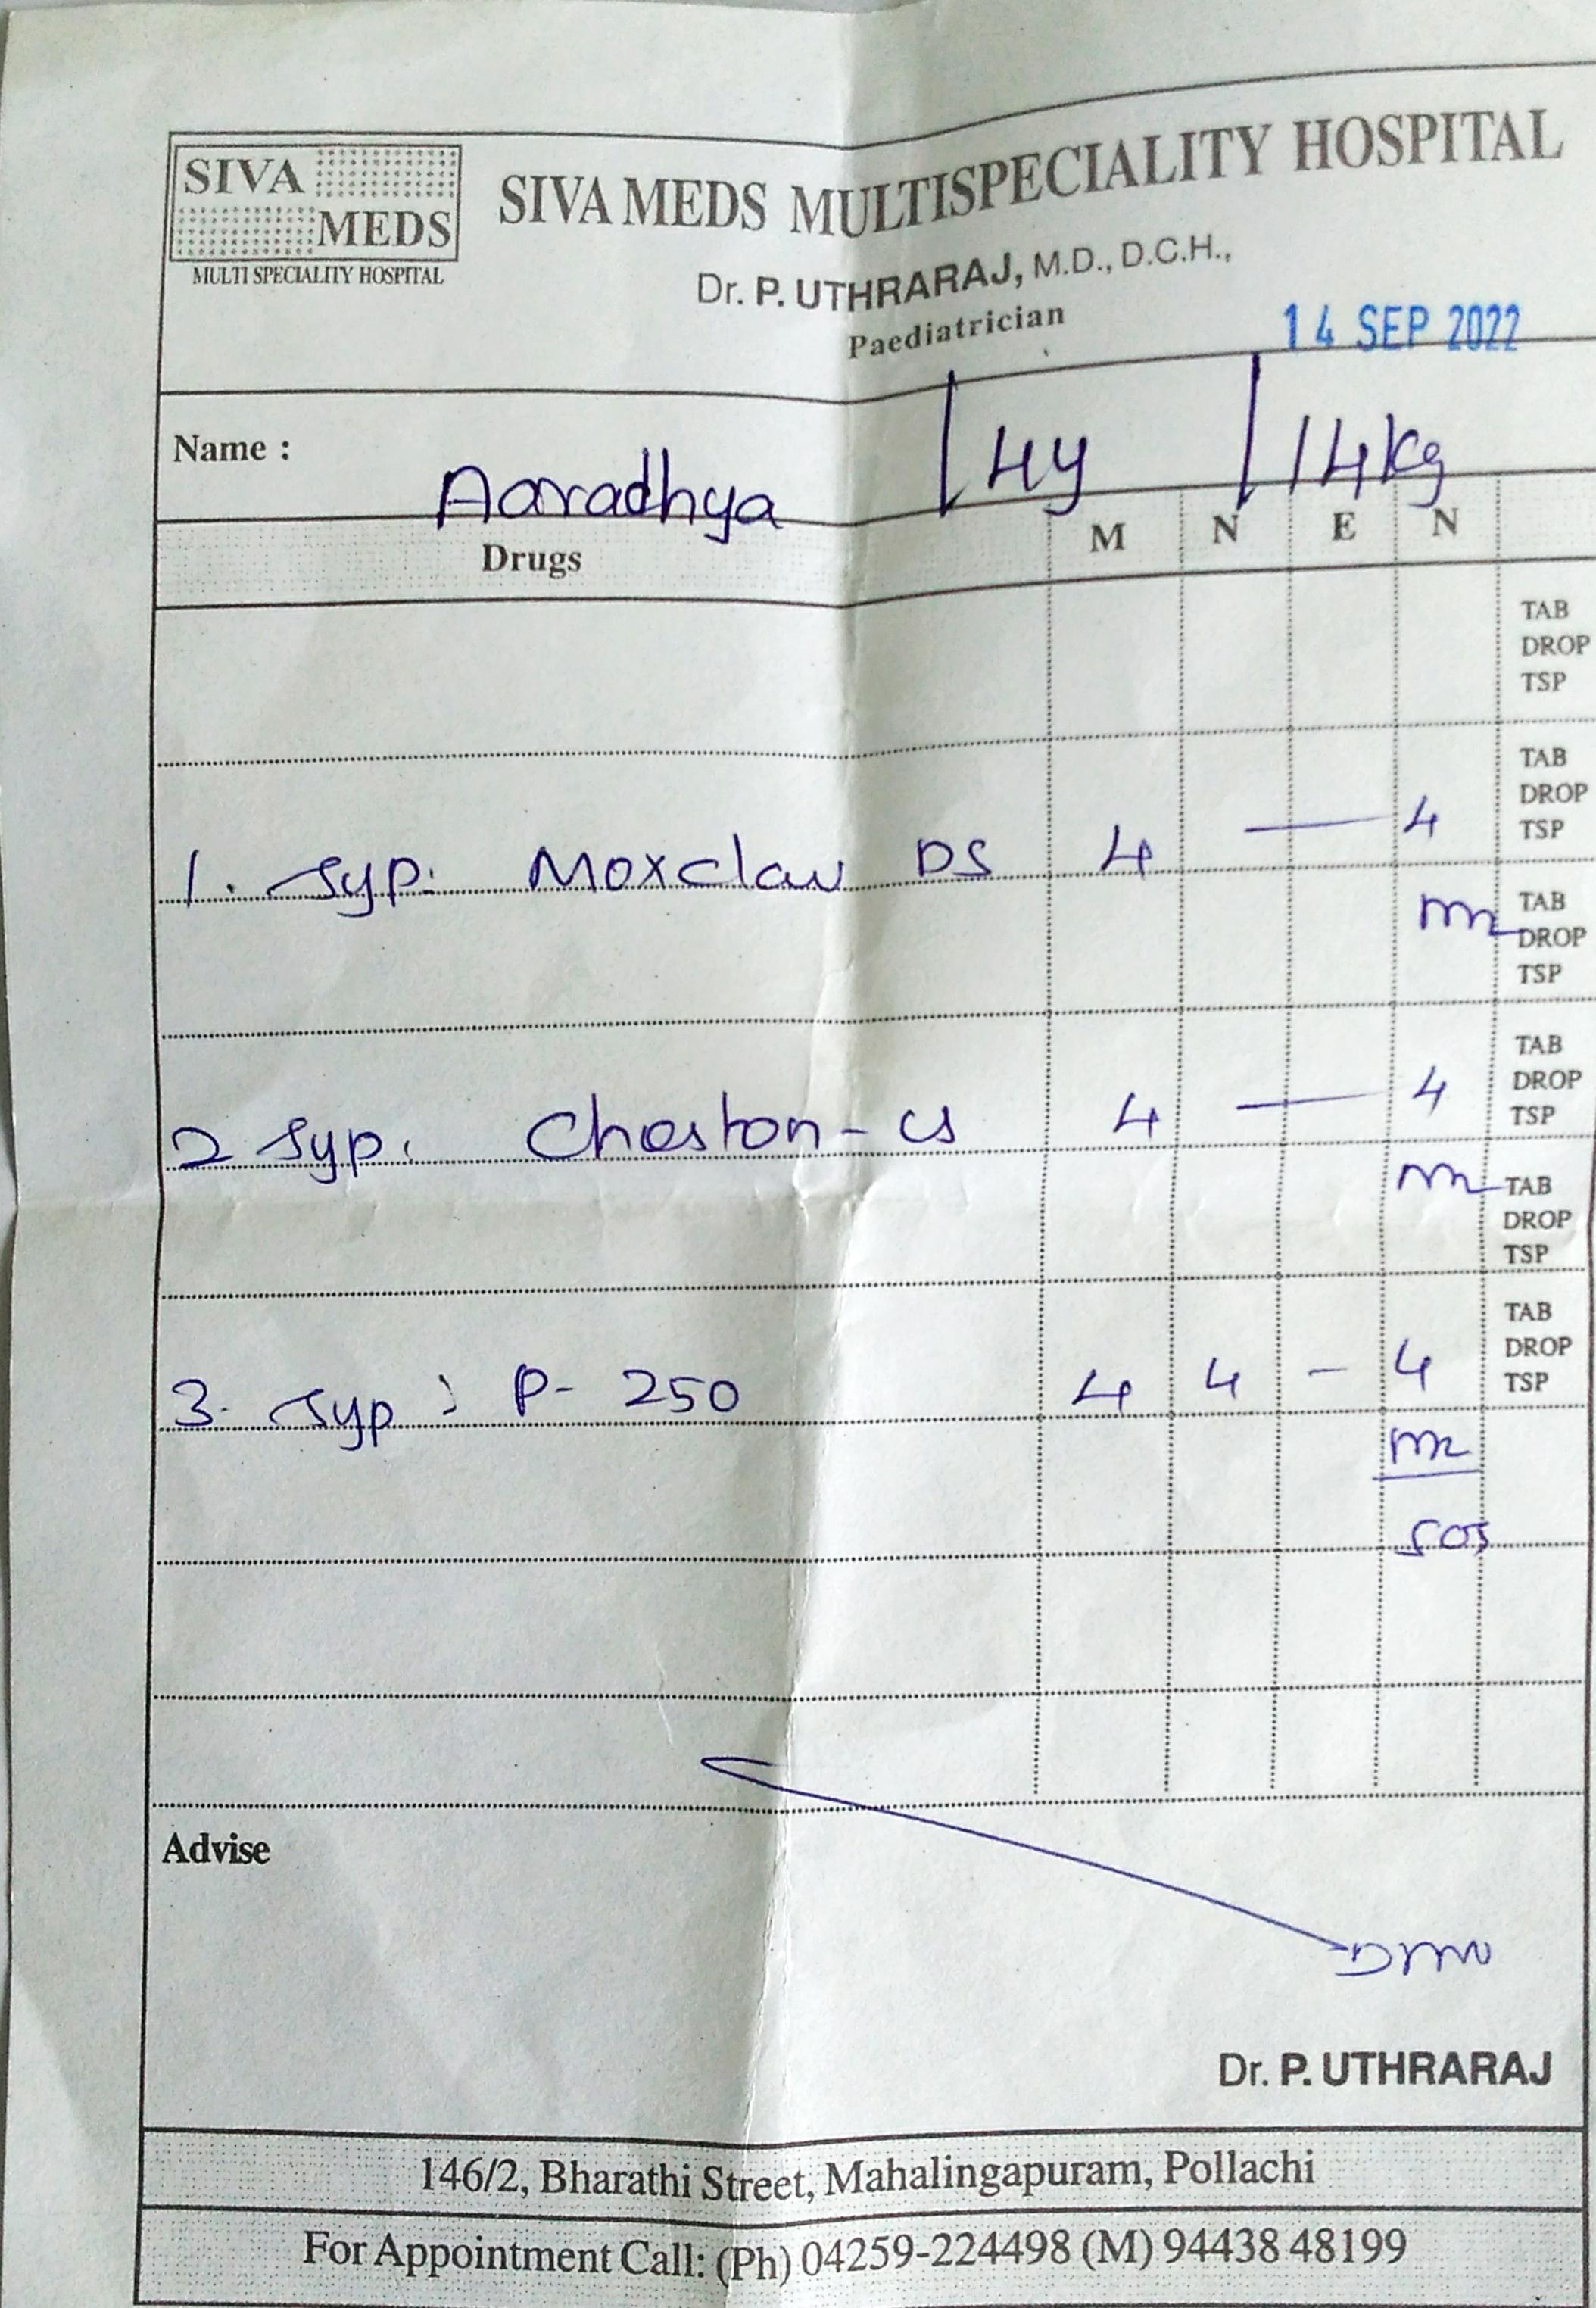 SIVA
MEDS
MULTI SPECIALITY HOSPITAL
SIVA MEDS MULTISPECIALITY HOSPITAL
Dr. P. UTHRARAJ, M.D., D.C.H.,
Paediatrician
14 SEP 2022
Name : Aaradhya | 4y | 14kg
Drugs M N E N
TAB
DROP
TSP
TAB
DROP
1. Syp. Moxclav DS 4 — 4 TSP
TAB
ml DROP
TSP
TAB
DROP
2 Syp. Cheston - CS 4 — 4 TSP
ml TAB
DROP
TSP
TAB
DROP
3. Syp : P- 250 4 4 - 4 TSP
ml
SOS
Advise
Dr. P. UTHRARAJ
146/2, Bharathi Street, Mahalingapuram, Pollachi
For Appointment Call: (Ph) 04259-224498 (M) 94438 48199